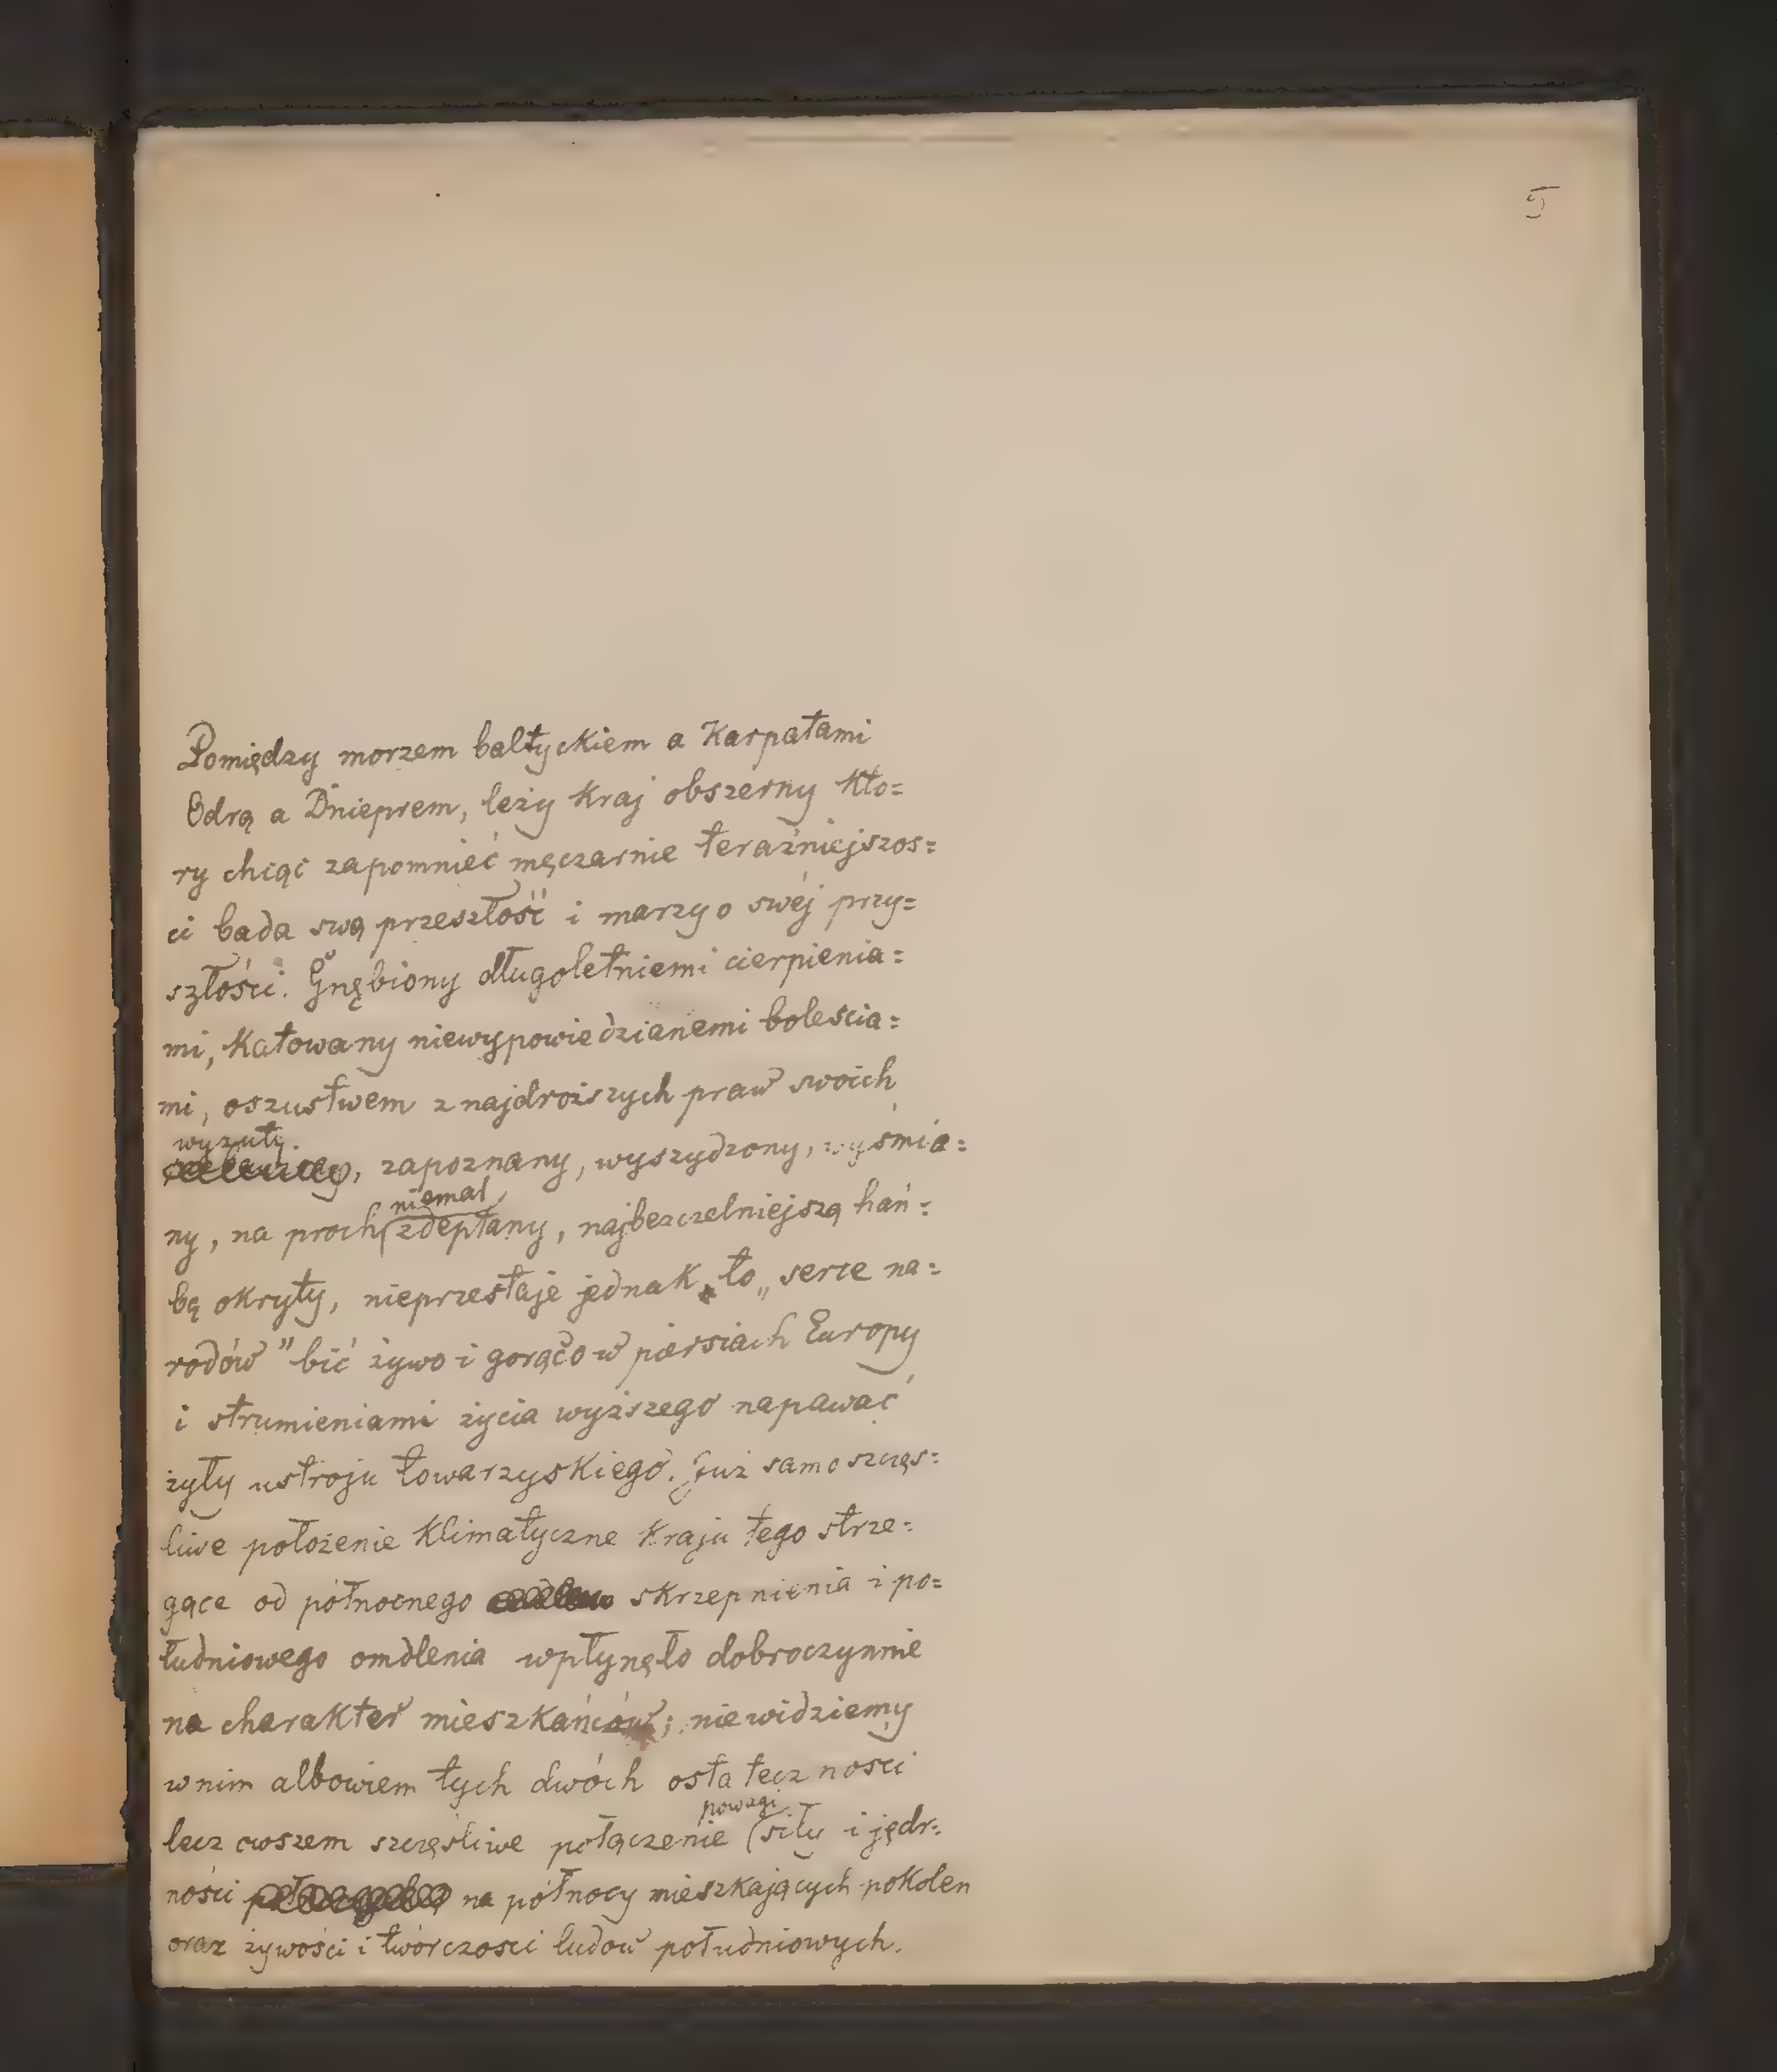 5
Pomiędzy morzem baltyckiem a Karpatami
Odrą a Dnieprem, leży kraj obszerny kto=
ry chcąc zapomnieć męczarnie teraźniejszos=
ci bada swą przeszłość i marzy o swéj przy=
szłości. Gnębiony długoletniemi cierpienia=
mi, katowany niewypowiedzianemi bolescia=
mi, oszustwem z najdroższych praw swoich
wyzuty.
, zapoznany, wyszydzony, wyśmia=
niemal
ny, na proch zdeptany, najbezczelniejszą hań=
bą okryty, nieprzestaje jednak to „serce na=
rodów" bić żywo i gorąco w piersiach Europy
i strumieniami życia wyższego napawać
żyły ustroju towarzyskiego. Już samo szczęs=
liwe położenie klimatyczne kraju tego strze=
gące od północnego skrzepnienia i po=
łudniowego omdlenia wpłynęło dobroczynnie
na charakter mieszkańców; niewidziemy
w nim albowiem tych dwóch ostateczności
powagi
lecz owszem szczęsliwe połączenie (siły i jędr=
ności na północy mieszkających pokolen
oraz żywości i twórczosci ludów południowych.